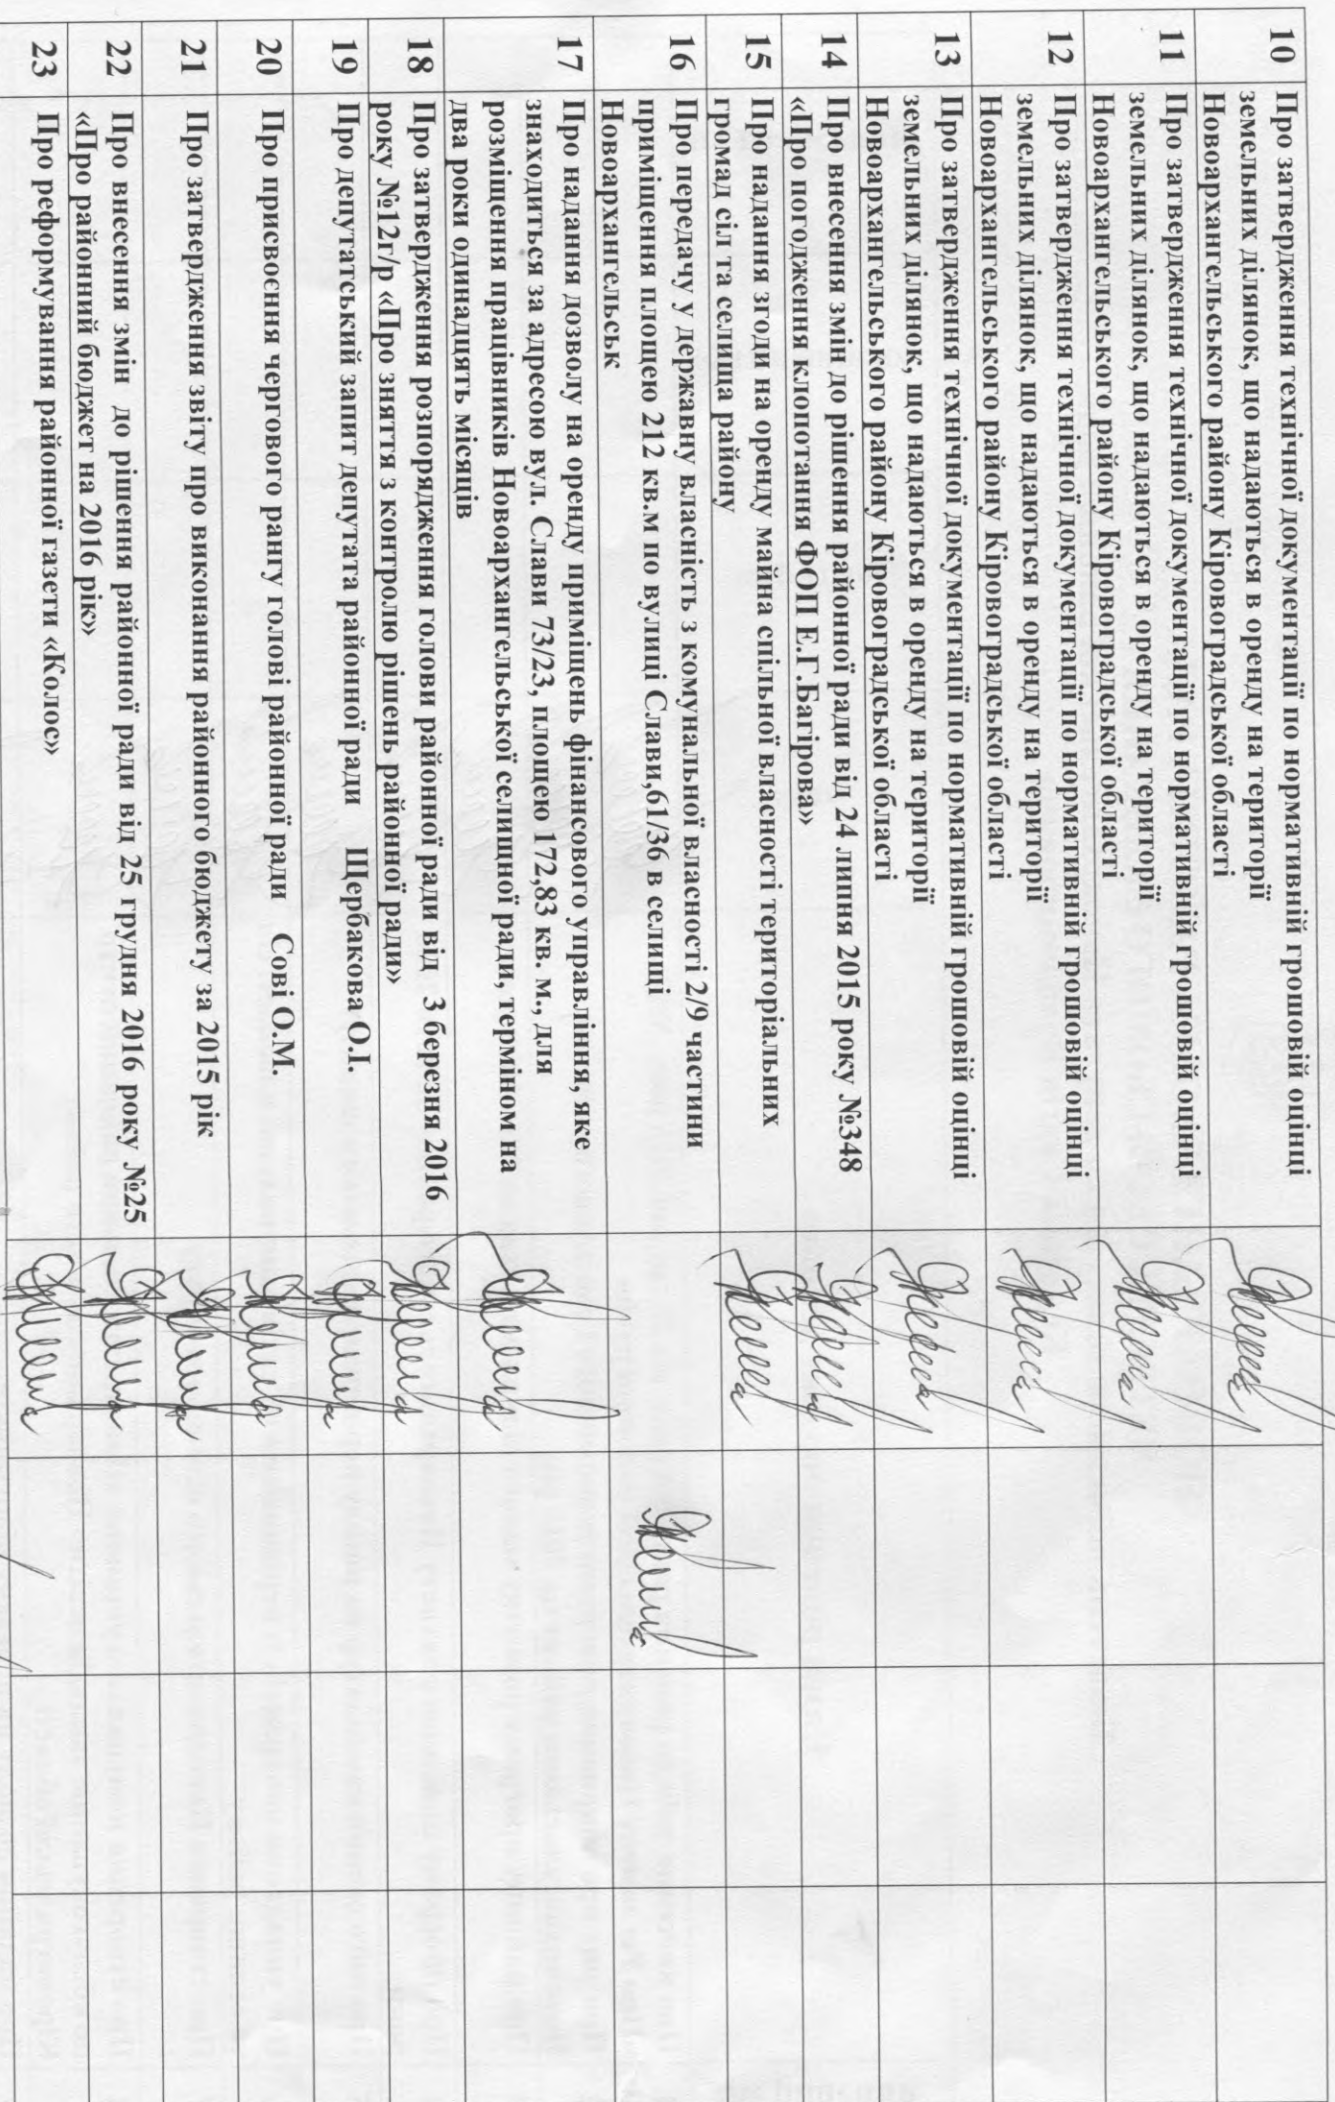 10 Про затвердження технічної документації по нормативній грошовій оцінці
земельних ділянок, що надаються в оренду на території
Новоархангельського району Кіровоградської області
11 Про затвердження технічної документації по нормативній грошовій оцінці
земельних ділянок, що надаються в оренду на території
Новоархангельського району Кіровоградської області
12 Про затвердження технічної документації по нормативній грошовій оцінці
земельних ділянок, що надаються в оренду на території
Новоархангельського району Кіровоградської області
13 Про затвердження технічної документації по нормативній грошовій оцінці
земельних ділянок, що надаються в оренду на території
Новоархангельського району Кіровоградської області
14 Про внесення змін до рішення районної ради від 24 липня 2015 року №348
«Про погодження клопотання ФОП Е.Г.Багірова»
15 Про надання згоди на оренду майна спільної власності територіальних
громад сіл та селища району
16 Про передачу у державну власність з комунальної власності 2/9 частини
приміщення площею 212 кв.м по вулиці Слави,61/36 в селищі
Новоархангельськ
17 Про надання дозволу на оренду приміщень фінансового управління, яке
знаходиться за адресою вул. Слави 73/23, площею 172,83 кв. м., для
розміщення працівників Новоархангельської селищної ради, терміном на
два роки одинадцять місяців
18 Про затвердження розпорядження голови районної ради від 3 березня 2016
року №12г/р «Про зняття з контролю рішень районної ради»
19 Про депутатський запит депутата районної ради Щербакова О.І.
20 Про присвоєння чергового рангу голові районної ради Сові О.М.
21 Про затвердження звіту про виконання районного бюджету за 2015 рік
22 Про внесення змін до рішення районної ради від 25 грудня 2016 року №25
«Про районний бюджет на 2016 рік»
23 Про реформування районної газети «Колос»